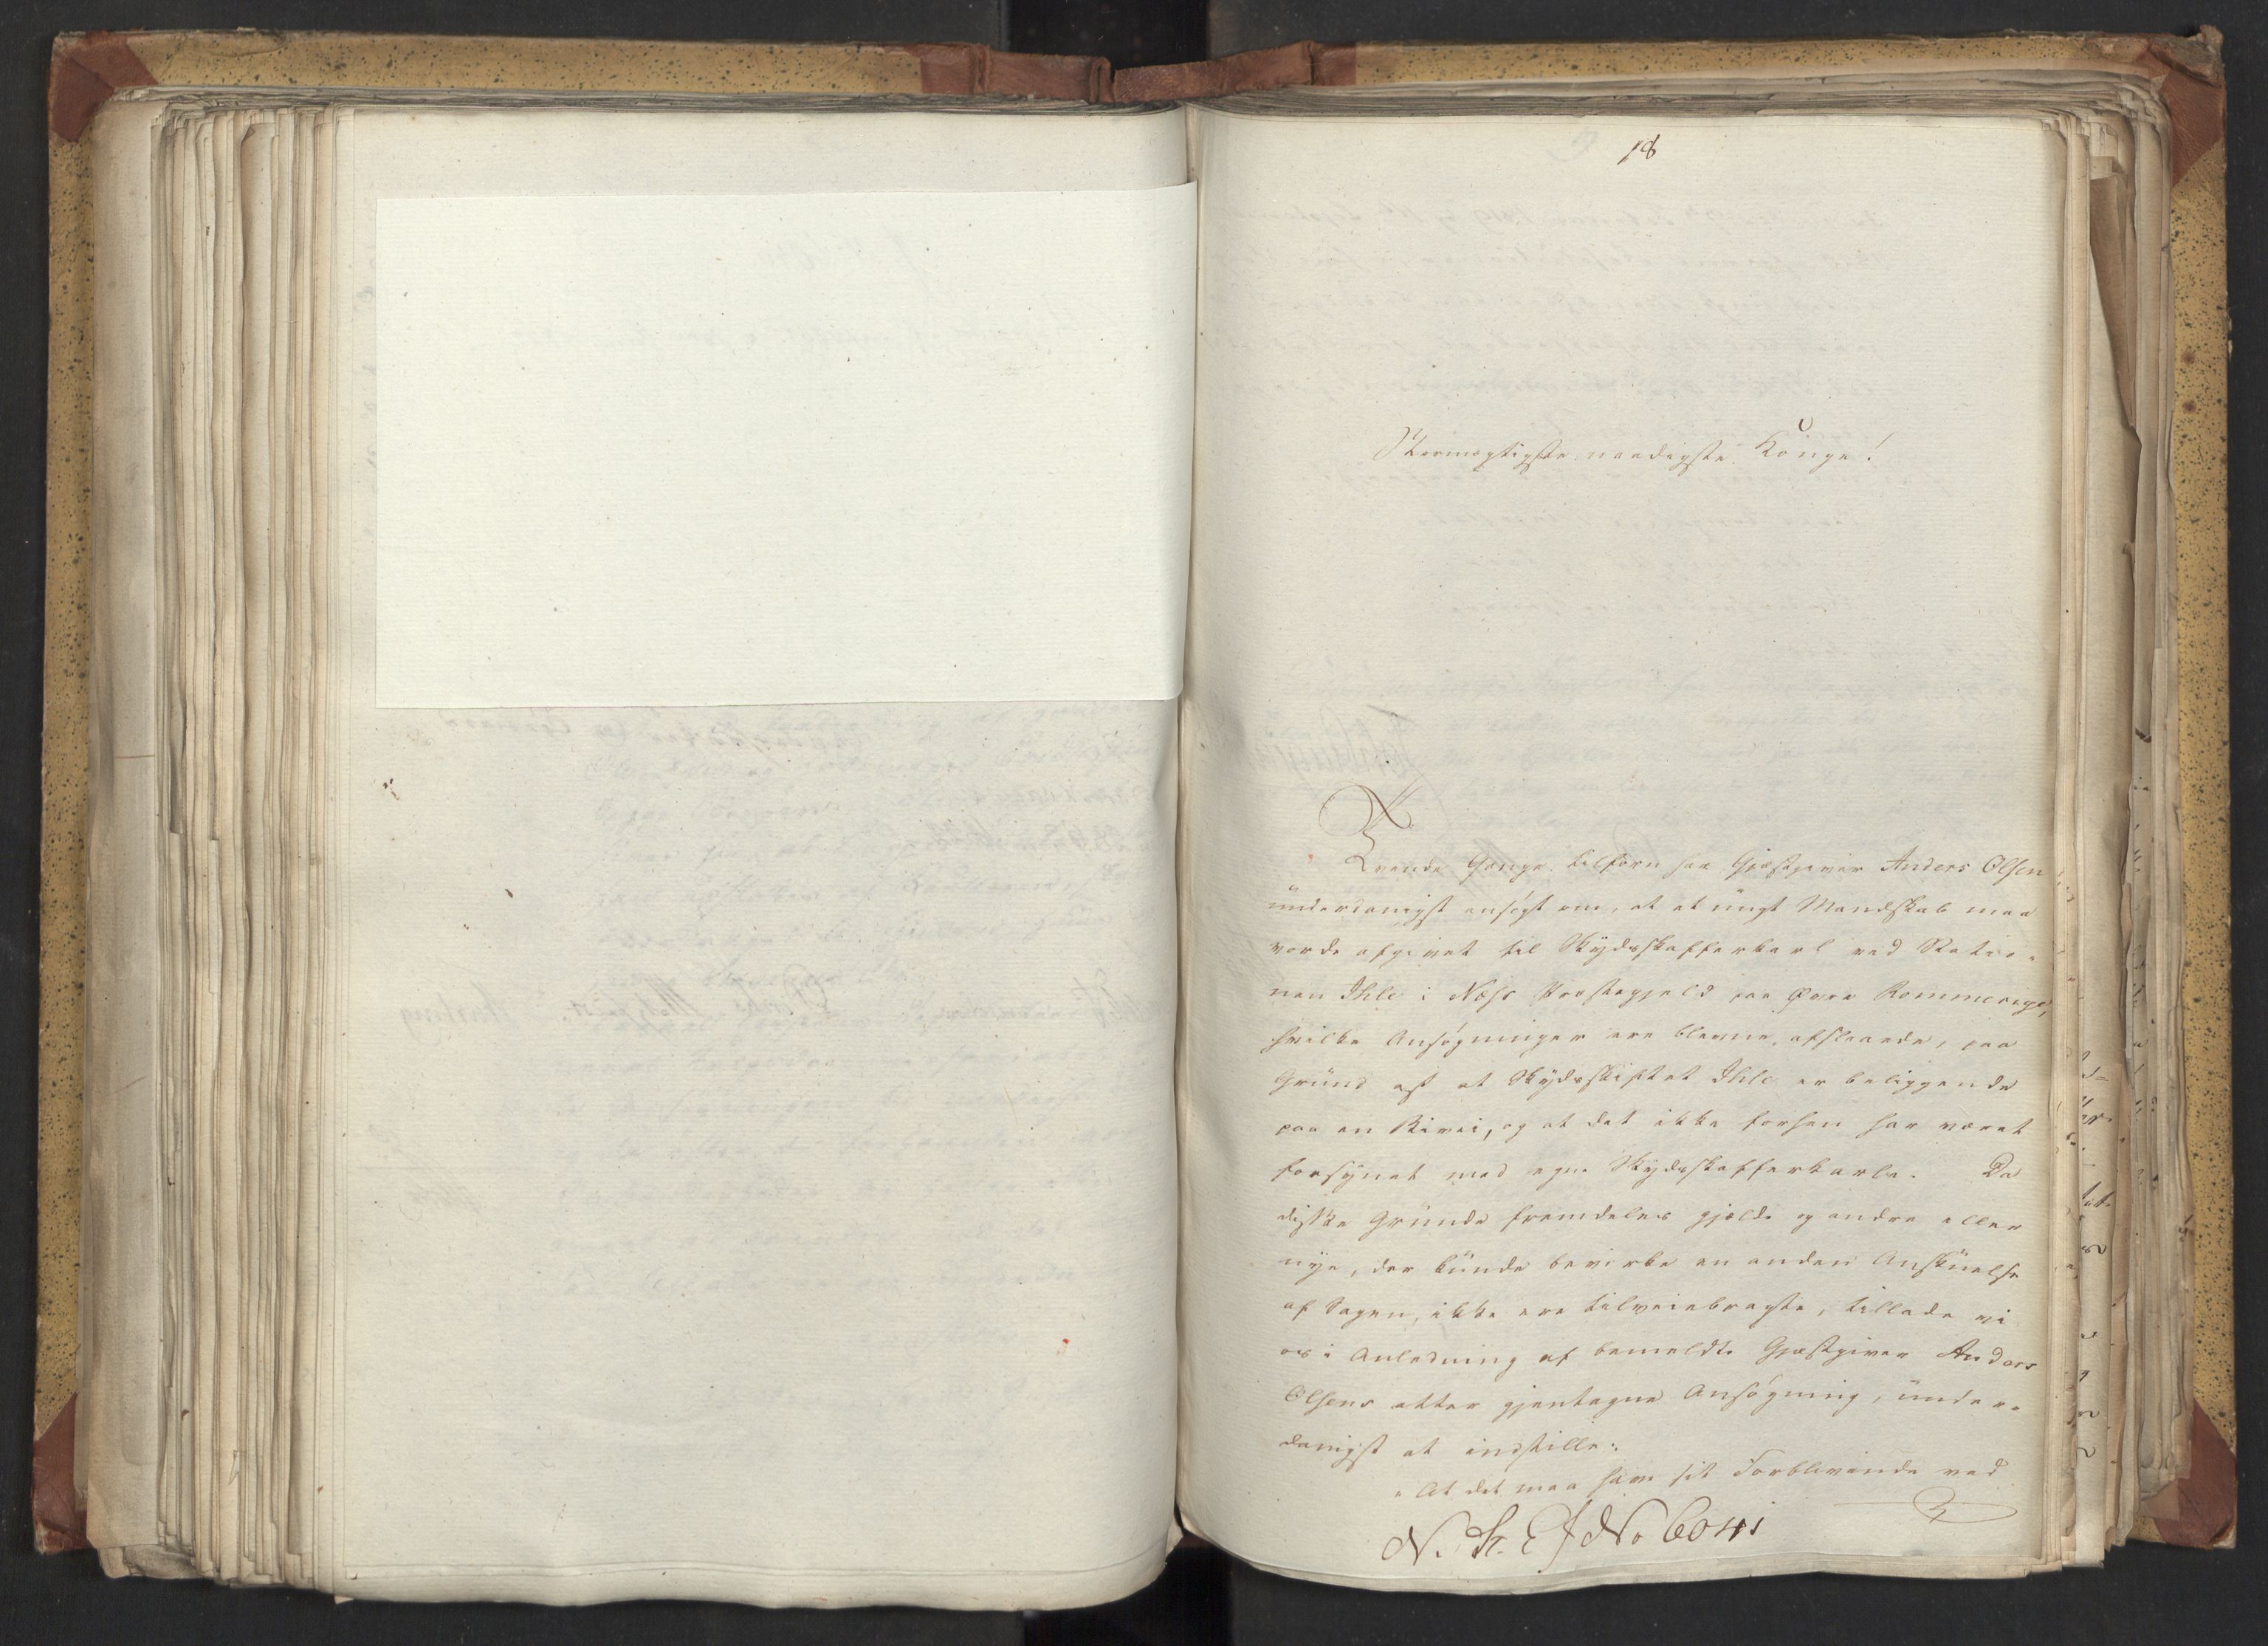 18
Stormægtigste naadigste Konge!
Tvende Gange tilforn har Gjæstgiver Anders Olsen
underdanigst ansøgt om, at et ungt Mandskab maa
vorde afgivet til Skydsskafferkarl ved Statio-
nen Ihle i Næss Præstegjeld paa Øvre Rommerige,
hvilke Ansøgninger ere blevne afslaaede, paa
Grund af at Skydsskiftet Ihle er beliggende
paa en Bivei, og at det ikke forhen har været
forsynet med egne Skydsskafferkarle. Da
disse Grunde fremdeles gjælde og andre eller
nye, der kunde bevirke en anden Anskuelse
af Sagen, ikke ere tilveiebragte, tillade vi
os i Anledning af bemeldte Gjæstgiver Anders
Olsens atter gjentagne Ansøgning, under-
danigst at indstille:
"At det maa have sit Forblivende ved
N. St. E J No 6041